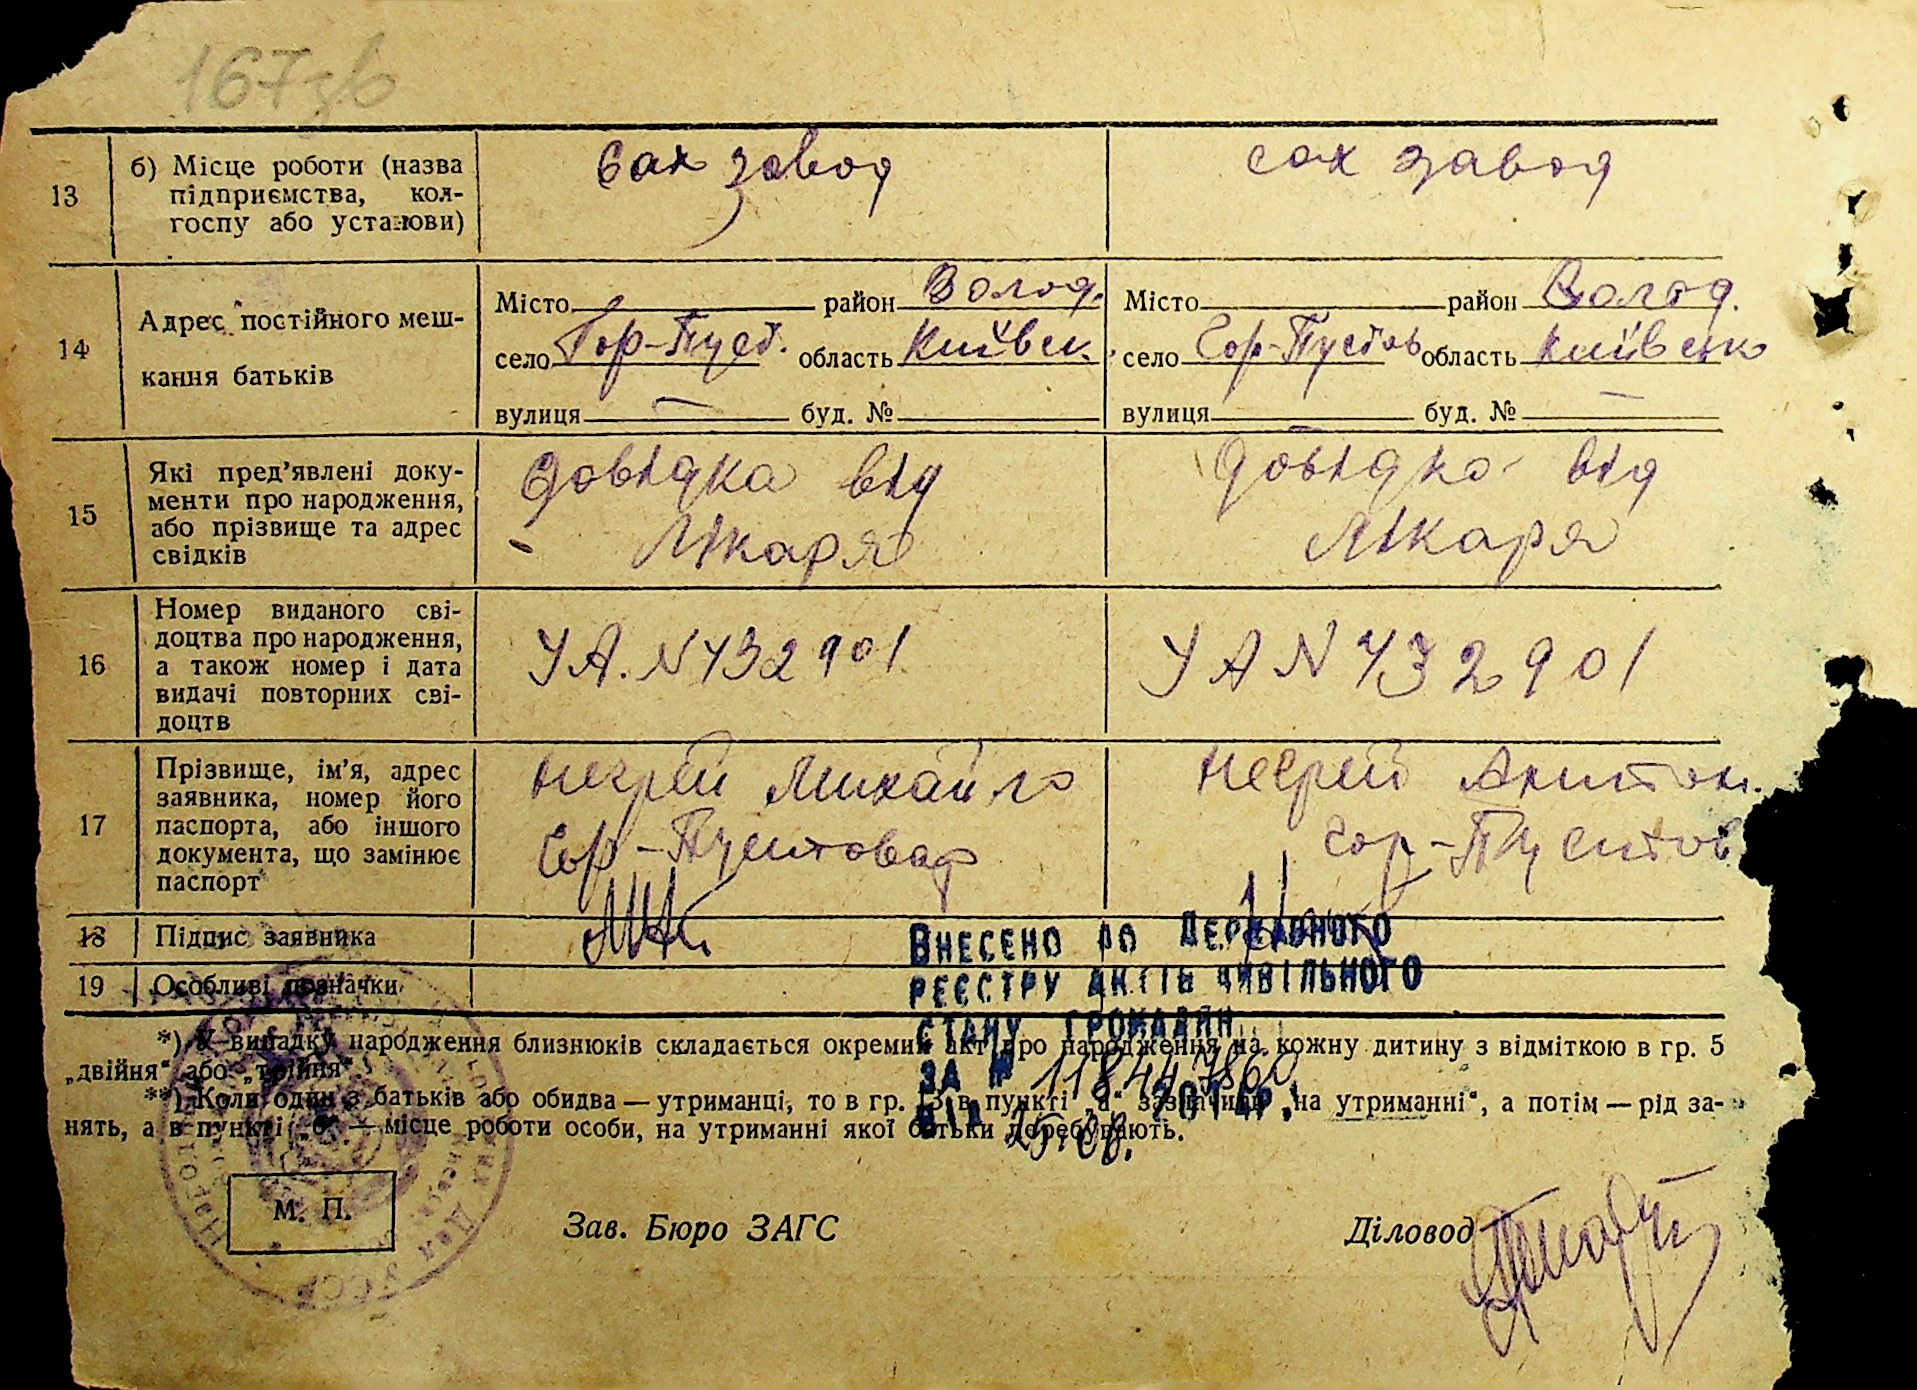 167зв
13
б) Місце роботи (назва
підприємства, кол-
госпу або установи)
Сах завод
сах завод
14
Адрес постійного меш-
кання батьків
Місто район Волод.
село Гор-Пуст. область Київськ.
вулиця — буд. №
Місто район Волод.
село Гор-Пустов область Київськ
вулиця буд. № —
15
Які пред’явлені доку-
менти про народження,
або прізвище та адрес
свідків
Довідка від
Лікаря
Довідка від
Лікаря
16
Номер виданого сві-
доцтва про народження,
а також номер і дата
видачі повторних сві-
доцтв
УА. N 432901
УА N 432901
17
Прізвище, ім’я, адрес
заявника, номер його
паспорта, або іншого
документа, що замінює
паспорт
Негрей Михайло
Гор-Пустовар
Негрей
Гор-Пустов
18
Підпис заявника
19
Особливі позначки
Внесено до Державного
реєстру актів цивільного
стану громадян
за № 11844786
від 25.08. 2014р.
*) У випадку народження близнюків складається окремий акт про народження на кожну дитину з відміткою в гр. 5
„двійня“ або „трійня“.
**) Коли один з батьків або обидва — утриманці, то в гр. 13 в пункті „а“ зазначити „на утриманні“, а потім — рід за-
нять, а в пункті „б“ — місце роботи особи, на утриманні якої батьки перебувають.
М. П.
Зав. Бюро ЗАГС
Діловод